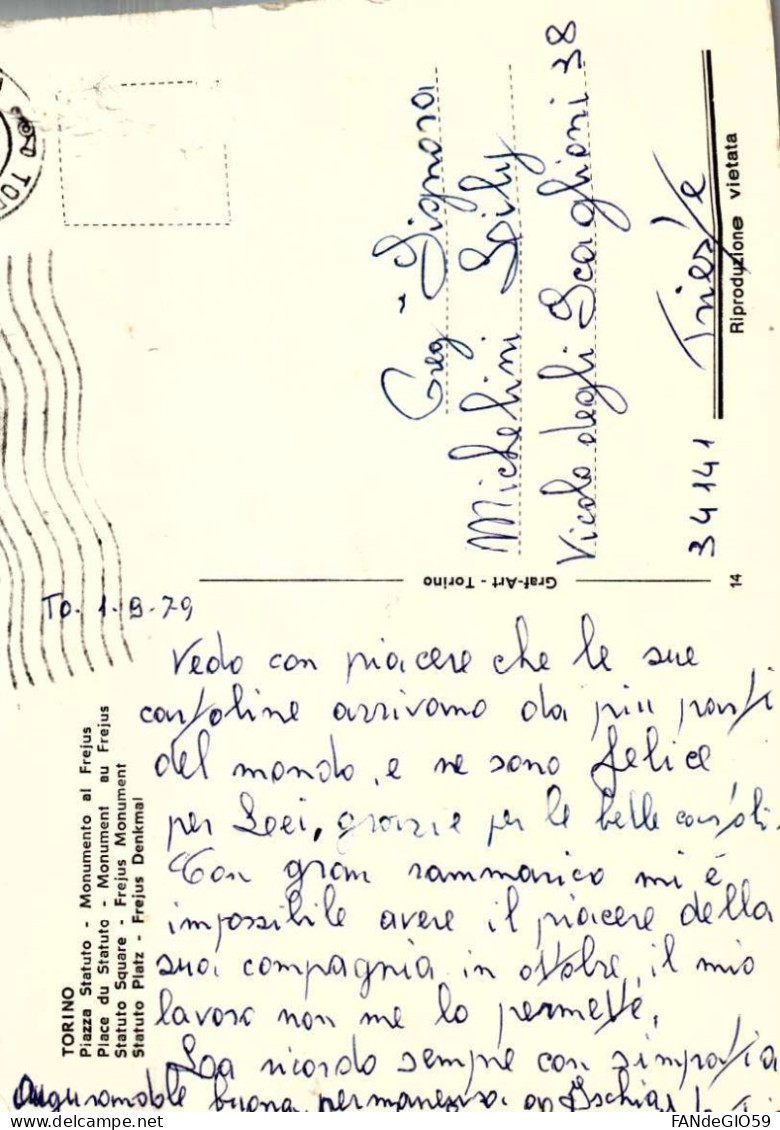 TO
Greg. Signora
Michelini Lily
Vicolo degli Scaglioni 38
34141 Trieste
Riproduzione vietata
14
Graf-Art - Torino
TORINO
Piazza Statuto - Monumento al Frejus
Place du Statuto - Monument au Frejus
Statuto Square - Frejus Monument
Statuto Platz - Frejus Denkmal
To. 1-9-79
Vedo con piacere che le sue
cartoline arrivano da più parti
del mondo, e ne sono felice
per Lei, grazie per le belle cartoli.
Con gran rammarico mi è
impossibile avere il piacere della
sua compagnia in ottobre, il mio
lavoro non me lo permette,
La ricordo sempre con simpatia
augurandole buona permanenza ad Ischia
FANdeGIO59